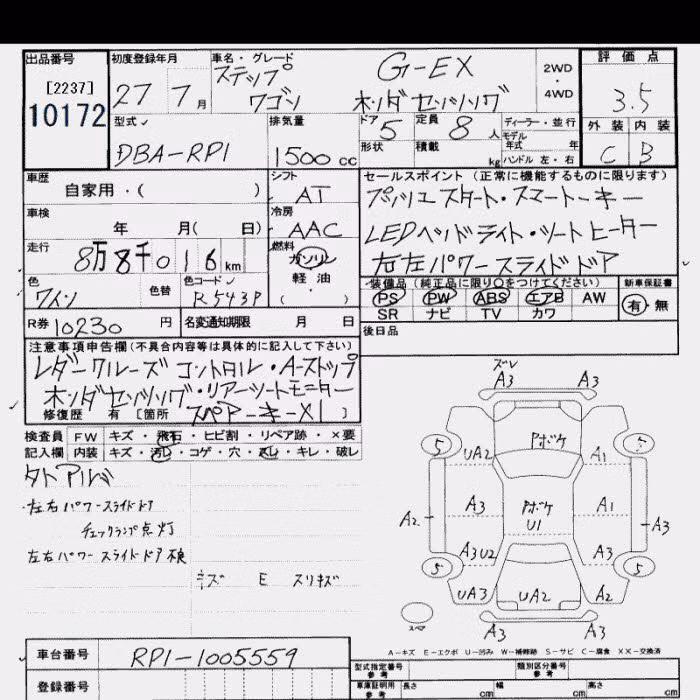 出品番号
[2237]
10172
初度登録年月
27 7 月
車名・グレード
ステップ
ワゴン
G-EX
ホンダセンシング
2WD
・
4WD
評価点
3.5
外装 内装
C B
型式
DBA-RP1
排気量
1500 cc
ドア
5
定員
8 人
形状
積載
kg
ディーラー・並行
モデル
年式 年
ハンドル 左・右
車歴
自家用・( )
シフト
AT
車検
年 月( 日)
冷房
AAC
走行
8万8千016 km
燃料
ガソリン
軽油
( ・ )
色
ワイン
色替
色コード
R543P
R券 10230 円
名変通知期限 月 日
セールスポイント(正常に機能するものに限ります)
プッシュスタート・スマートーキー
LEDヘッドライト・シートヒーター
右左パワースライドドア
装備品(純正品に限り○をつけてください)
PS PW ABS エアB AW
SR ナビ TV カワ
新車保証書
有・無
後日品
注意事項申告欄(不具合内容等は具体的に記入して下さい)
レダークルーズコントロル・A-ストップ
ホンダセンシング・リアーシートモニター
修復歴 有 [箇所 スペアーキーX1 ]
検査員 FW キズ・飛石・ヒビ割・リペア跡・×要
記入欄 内装 キズ・汚れ・コゲ・穴・スレ・キレ・破レ
左右パワースライドドア
チェックランプ点灯
左右パワースライドドア不良
キズ E スリキズ
ズレ
A3 A3
Pボケ
5 5
UA2 A1
A2 A3 Pボケ A1 A3
U1
A3U2 A3
5 5
UA3 UA2 A2
スペア
A3 A3
A-キズ E-エクボ U-凹み W-補修跡 S-サビ C-腐食 XX-交換済
車台番号 RP1-1005559
登録番号
型式指定番号
参考
類別区分番号
参考
車庫証明用
参考
長さ cm 幅 cm 高さ cm